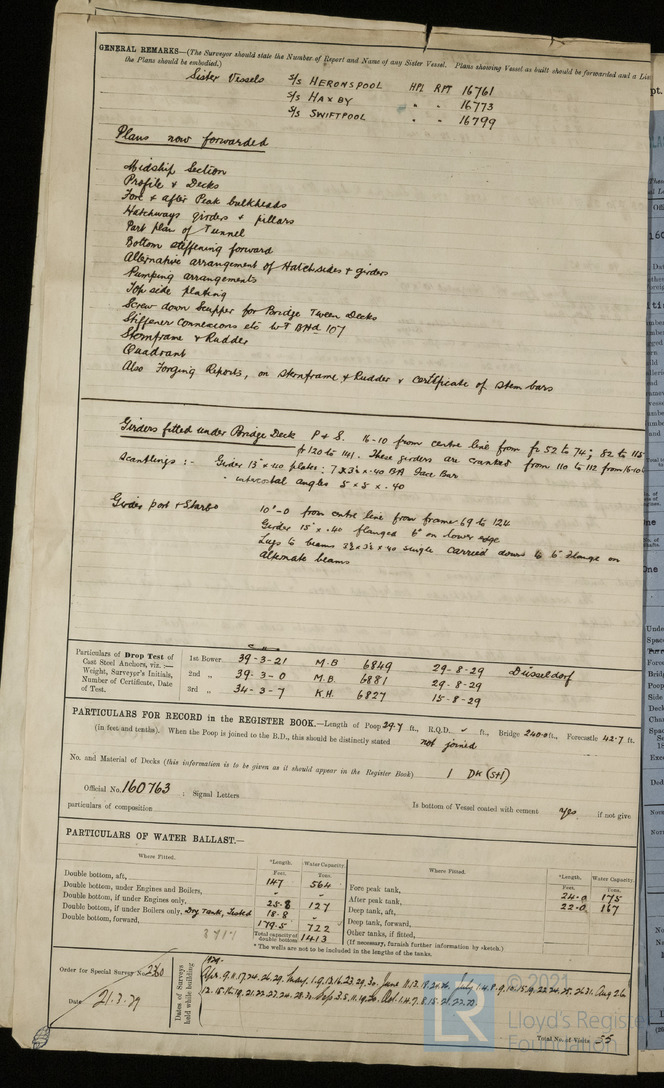 GENERAL REMARKS—(The Surveyor should state the Number of Report and Name of any Sister Vessel. Plans showing Vessel as built should be forwarded and a Lis
the Plans should be embodied.)
Sister Vessels S/S HERONSPOOL HPL RPT 16761
S/S HAXBY " " 16773
S/S SWIFTPOOL " " 16799
Plans now forwarded
Midship Section
Profile & Decks
Fore & after Peak bulkheads
Hatchways girders & pillars
Part plan of Tunnel
Bottom stiffening forward
Alternative arrangement of Hatchsides & girders
Pumping arrangements
Top side plating
Screw down Scupper for Bridge Tween Decks
Stiffener connexions etc WT BHd 107
Sternframe & Rudder
Quadrant
Also Forging Reports, on sternframe & Rudder & certificate of stem bars
Girders fitted under Bridge Deck P & S. 16-10 from centre line from fr 52 to 74; 82 to 115
fr 120 to 141. These girders are cranked from 110 to 112 from 16-10
Scantlings :- Girder 15" x .40 plates; 7 x 3½ x .40 BA Face Bar
" intercostal angles 5 x 5 x .40
Girder port & Starbd 10'-0 from centre line from frame 69 to 124
Girder 15" x .40 flanged 6" on lower edge
Lugs to beams 3½ x 3½ x .40 single carried down to 6" flange on
alternate beams
Particulars of Drop Test of
Cast Steel Anchors, viz. :—
Weight, Surveyor's Initials,
Number of Certificate, Date
of Test.
1st Bower 39-3-21 M.B 6849 29-8-29 Düsseldorf
2nd " 39-3-0 M.B. 6881 29-8-29
3rd " 34-3-7 K.H. 6827 15-8-29
PARTICULARS FOR RECORD in the REGISTER BOOK.—Length of Poop 29.7 ft., R.Q.D. ft., Bridge 240.0 ft., Forecastle 42.7 ft.
(in feet and tenths). When the Poop is joined to the B.D., this should be distinctly stated not joined
No. and Material of Decks (this information is to be given as it should appear in the Register Book) 1 DK (Stl)
Official No. 160763 ; Signal Letters Is bottom of Vessel coated with cement yes if not give
particulars of composition
PARTICULARS OF WATER BALLAST.—
Where Fitted. *Length. Water Capacity. Where Fitted. *Length. Water Capacity.
Feet. Tons. Feet. Tons.
Double bottom, aft, 147 564 Fore peak tank, 24.0 175
Double bottom, under Engines and Boilers, After peak tank, 22.0 167
Double bottom, if under Engines only, 25.8 127 Deep tank, aft,
Double bottom, if under Boilers only, Dry Tank, Tested 18.8 Deep tank, forward,
Double bottom, forward, 179.5 722 Other tanks, if fitted,
Total capacity of double bottom 1413 (If necessary, furnish further information by sketch.)
* The wells are not to be included in the lengths of the tanks.
Order for Special Survey No.
Date 21.3.29
Dates of Surveys
held while building
Total No. of Visits 55
© 2021
LR
Lloyd's Register
Foundation